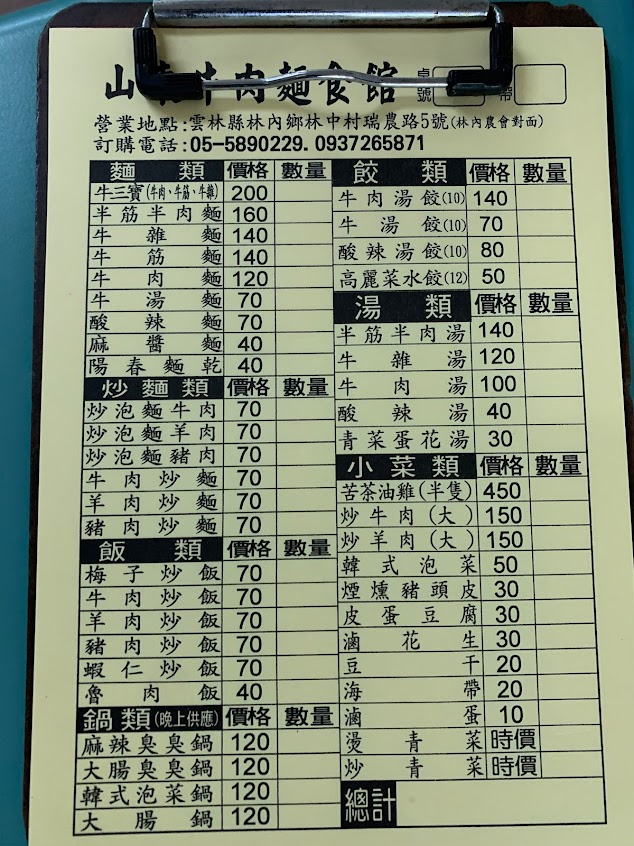 山 牛肉麵食館 桌號
營業地點:雲林縣林內鄉林中村瑞農路5號(林內農會對面)
訂購電話:05-5890229. 0937265871
麵類 價格 數量
牛三寶(牛肉、牛筋、牛雜) 200
半筋半肉麵 160
牛雜麵 140
牛筋麵 140
牛肉麵 120
牛湯麵 70
酸辣麵 70
麻醬麵 40
陽春麵乾 40
炒麵類 價格 數量
炒泡麵牛肉 70
炒泡麵羊肉 70
炒泡麵豬肉 70
牛肉炒麵 70
羊肉炒麵 70
豬肉炒麵 70
飯類 價格 數量
梅子炒飯 70
牛肉炒飯 70
羊肉炒飯 70
豬肉炒飯 70
蝦仁炒飯 70
魯肉飯 40
鍋類(晚上供應) 價格 數量
麻辣臭臭鍋 120
大腸臭臭鍋 120
韓式泡菜鍋 120
大腸鍋 120
餃類 價格 數量
牛肉湯餃(10) 140
牛湯餃(10) 70
酸辣湯餃(10) 80
高麗菜水餃(12) 50
湯類 價格 數量
半筋半肉湯 140
牛雜湯 120
牛肉湯 100
酸辣湯 40
青菜蛋花湯 30
小菜類 價格 數量
苦茶油雞(半隻) 450
炒牛肉(大) 150
炒羊肉(大) 150
韓式泡菜 50
煙燻豬頭皮 30
皮蛋豆腐 30
滷花生 30
豆干 20
海帶 20
滷蛋 10
燙青菜 時價
炒青菜 時價
總計